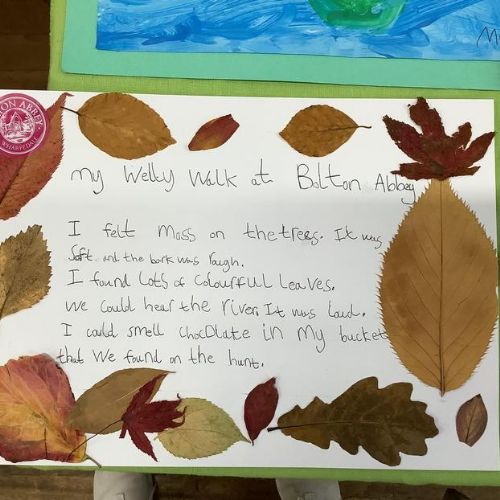 ON ABBEY
My Welly Walk at Bolton Abbey
I felt moss on the trees. It was
Soft and the bark was rough.
I found Lots of colourful Leaves.
we could hear the river. It was Loud.
I could smell chocolate in my bucket
that we found on the hunt.
M